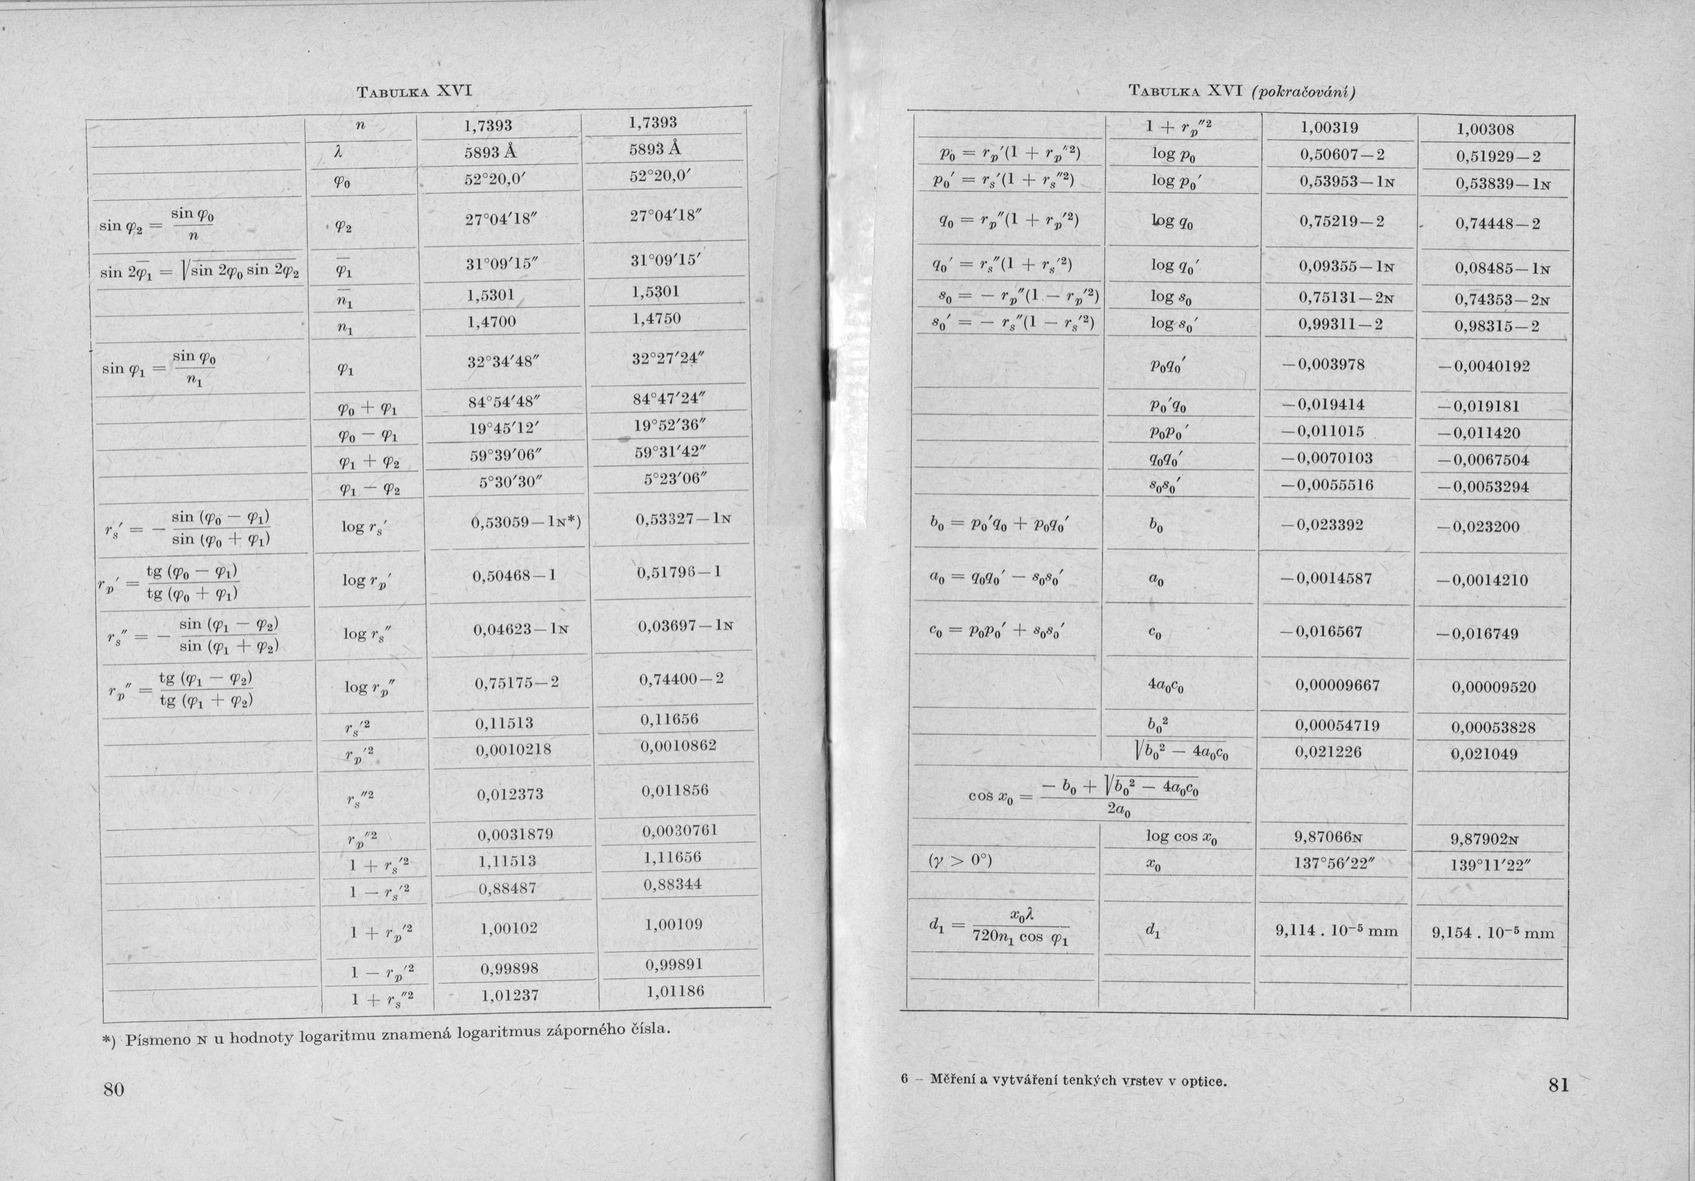 TABULKA XVI
n 1,7393 1,7393
λ 5893 Å 5893 Å
φ₀ 52°20,0′ 52°20,0′
sin φ₂ = sin φ₀ / n φ₂ 27°04′18″ 27°04′18″
sin 2φ̄₁ = √sin 2φ₀ sin 2φ₂ φ̄₁ 31°09′15″ 31°09′15′
n̄₁ 1,5301 1,5301
n₁ 1,4700 1,4750
sin φ₁ = sin φ₀ / n₁ φ₁ 32°34′48″ 32°27′24″
φ₀ + φ₁ 84°54′48″ 84°47′24″
φ₀ − φ₁ 19°45′12′ 19°52′36″
φ₁ + φ₂ 59°39′06″ 59°31′42″
φ₁ − φ₂ 5°30′30″ 5°23′06″
rₛ′ = − sin (φ₀ − φ₁) / sin (φ₀ + φ₁) log rₛ′ 0,53059−1N*) 0,53327−1N
rₚ′ = tg (φ₀ − φ₁) / tg (φ₀ + φ₁) log rₚ′ 0,50468−1 0,51796−1
rₛ″ = − sin (φ₁ − φ₂) / sin (φ₁ + φ₂) log rₛ″ 0,04623−1N 0,03697−1N
rₚ″ = tg (φ₁ − φ₂) / tg (φ₁ + φ₂) log rₚ″ 0,75175−2 0,74400−2
rₛ′² 0,11513 0,11656
rₚ′² 0,0010218 0,0010862
rₛ″² 0,012373 0,011856
rₚ″² 0,0031879 0,0030761
1 + rₛ′² 1,11513 1,11656
1 − rₛ′² 0,88487 0,88344
1 + rₚ′² 1,00102 1,00109
1 − rₚ′² 0,99898 0,99891
1 + rₛ″² 1,01237 1,01186
*) Písmeno N u hodnoty logaritmu znamená logaritmus záporného čísla.
80
TABULKA XVI (pokračování)
1 + rₚ″² 1,00319 1,00308
p₀ = rₚ′(1 + rₚ″²) log p₀ 0,50607−2 0,51929−2
p₀′ = rₛ′(1 + rₛ″²) log p₀′ 0,53953−1N 0,53839−1N
q₀ = rₚ″(1 + rₚ′²) log q₀ 0,75219−2 0,74448−2
q₀′ = rₛ″(1 + rₛ′²) log q₀′ 0,09355−1N 0,08485−1N
s₀ = − rₚ″(1 − rₚ′²) log s₀ 0,75131−2N 0,74353−2N
s₀′ = − rₛ″(1 − rₛ′²) log s₀′ 0,99311−2 0,98315−2
p₀q₀′ −0,003978 −0,0040192
p₀′q₀ −0,019414 −0,019181
p₀p₀′ −0,011015 −0,011420
q₀q₀′ −0,0070103 −0,0067504
s₀s₀′ −0,0055516 −0,0053294
b₀ = p₀′q₀ + p₀q₀′ b₀ −0,023392 −0,023200
a₀ = q₀q₀′ − s₀s₀′ a₀ −0,0014587 −0,0014210
c₀ = p₀p₀′ + s₀s₀′ c₀ −0,016567 −0,016749
4a₀c₀ 0,00009667 0,00009520
b₀² 0,00054719 0,00053828
√b₀² − 4a₀c₀ 0,021226 0,021049
cos x₀ = − b₀ + √b₀² − 4a₀c₀ / 2a₀
log cos x₀ 9,87066N 9,87902N
(γ > 0°) x₀ 137°56′22″ 139°11′22″
d₁ = x₀λ / 720n₁ cos φ₁ d₁ 9,114 . 10⁻⁵ mm 9,154 . 10⁻⁵ mm
6 – Měření a vytváření tenkých vrstev v optice.
81